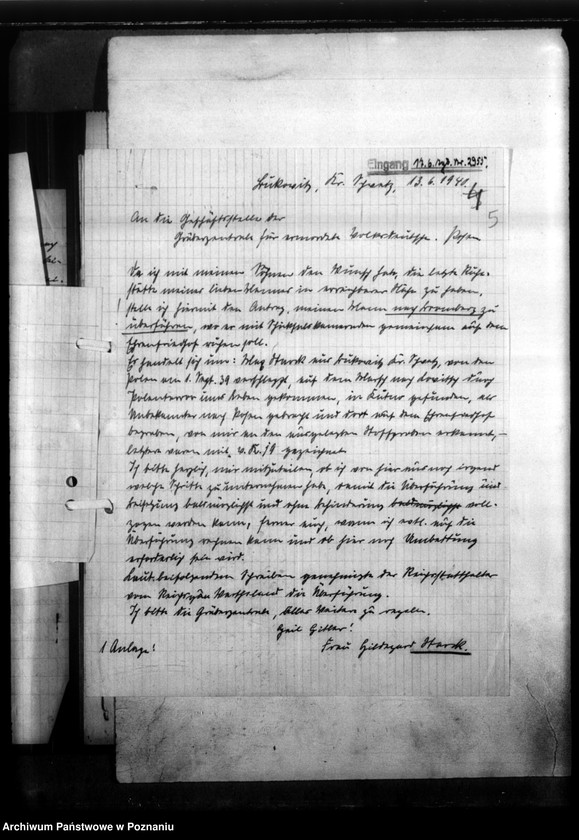 Eingang 13.6. Tgb. Nr. 2955.
Bukowitz, Kr. Schwetz, 13.6.1940.
4
5
An die Geschäftsstelle der
Gräberzentrale für ermordete Volksdeutsche. Posen
Da ich mit meinen Söhnen den Wunsch habe, die letzte Ruhe-
stätte meines lieben Mannes in erreichbarer Nähe zu haben,
! stelle ich hiermit den Antrag, meinen Mann nach Bromberg zu
überführen, wo er mit Schicksalskameraden gemeinsam auf dem
Ehrenfriedhof ruhen soll.
Es handelt sich um: Max Starck aus Bukowitz Kr. Schwetz, von den
Polen am 1. Sept. 39 verschleppt, auf dem Marsch nach Lowitsch durch
Polenterror ums Leben gekommen, in Kutno gefunden, als
Unbekannter nach Posen gebracht und dort auf dem Ehrenfriedhof
begraben, von mir an den ausgelegten Stoffproben erkannt,
letztere waren mit gezeichnet
Ich bitte herzlich, mir mitzuteilen, ob ich von hier aus noch irgend
welche Schritte zu unternehmen habe, damit die Überführung und
Beisetzung baldmöglichst und ohne Behinderung baldmöglichst voll-
zogen werden kann; ferner auch, wann ich evtl. auf die
Überführung rechnen kann und ob hier noch Umbettung
erforderlich sein wird.
Laut beifolgendem Schreiben genehmigte der Reichsstatthalter
vom Reichsgau Wartheland die Überführung.
Ich bitte die Gräberzentrale, alles Weitere zu regeln.
Heil Hitler!
1 Anlage! Frau Hildegard Starck.
Archiwum Państwowe w Poznaniu